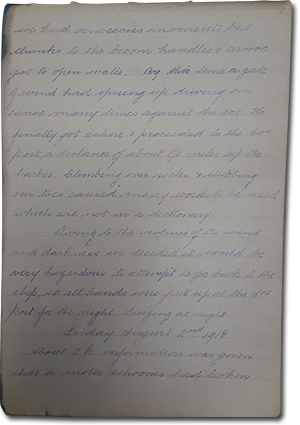 we had anxious moments but
thanks to the broom handles canoe
got to open water. By this time a gale
of wind had sprung up driving our
canoe many times against the ice. We
finally got ashore & proceeded to the
post, a distance of about 1½ miles up the
harbor. Climbing over rocks & stubbing
our toes caused many words to be used
which are not in a dictionary.
Owing to the violence of the wind
and darkness we decided it would be
very hazardous to attempt to go back to the
ship, so all hands were put up at the
post for the night. Laying at night
Friday August 2nd 1918
About 2 h information was given
that a motor schooner had broken